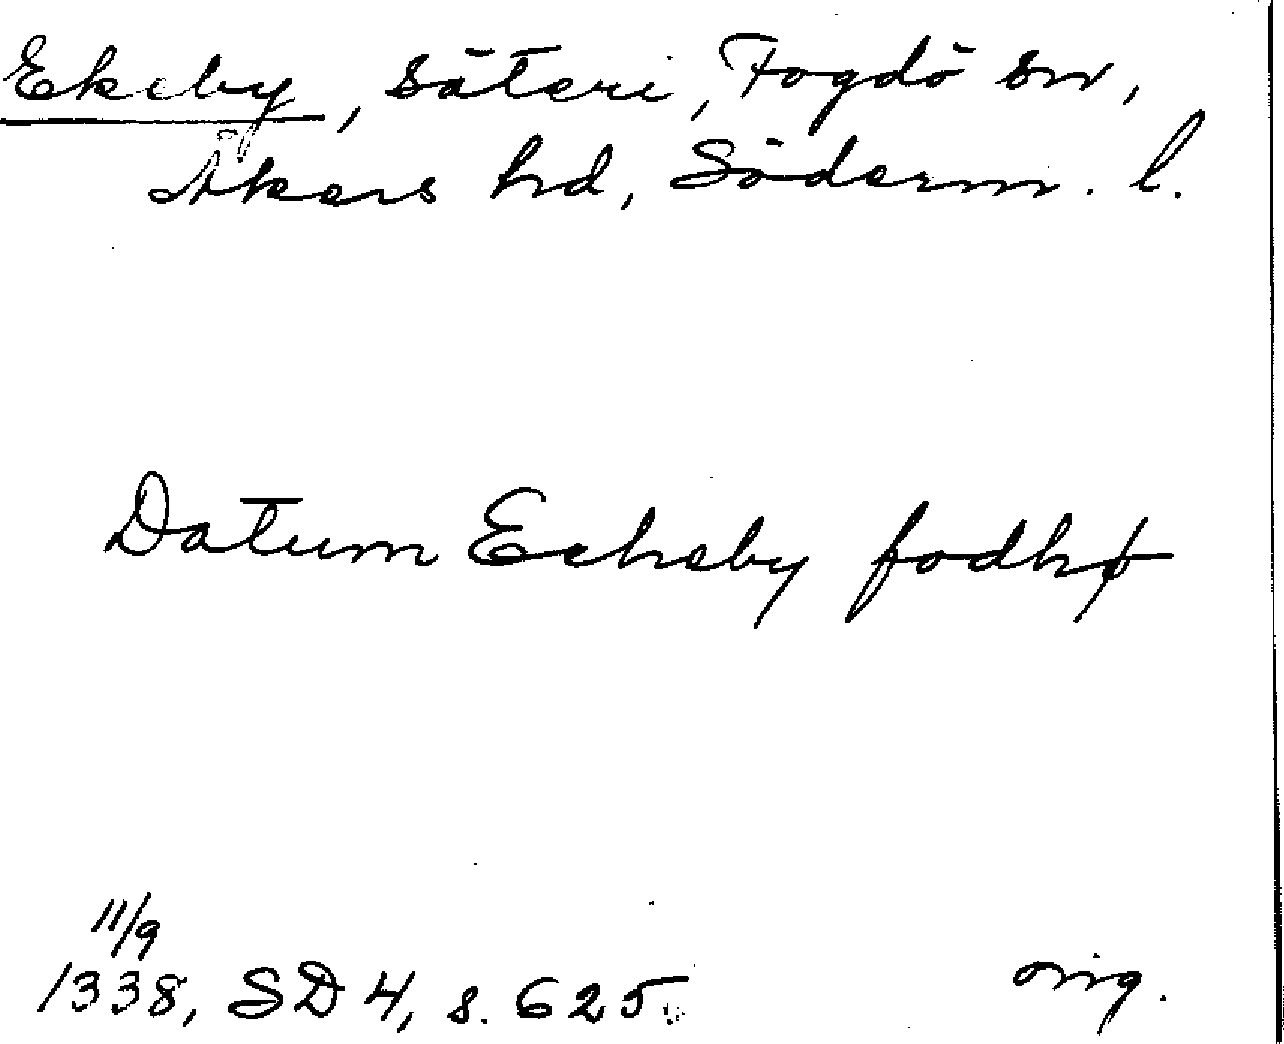 Ekeby, säteri, Fogdö sn,
Åkers hd, Söderm. l.
Datum Echeby fodhø
11/9
1338, SD 4, s. 625. orig.